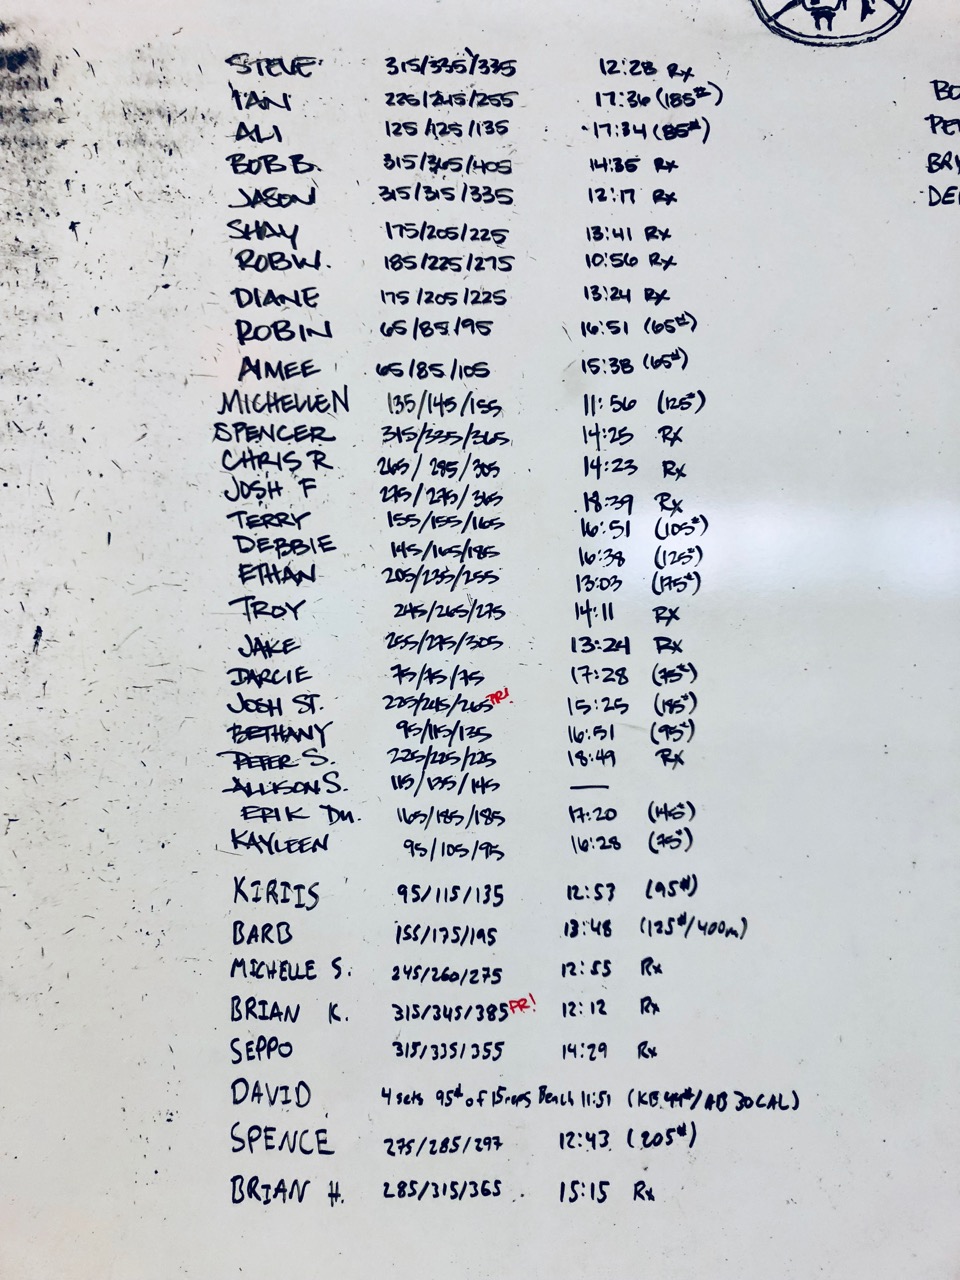 STEVE 315/335/335 12:28 Rx
IAN 225/245/255 17:36 (185#)
ALI 125/125/135 17:34 (85#)
BOB B. 315/365/405 14:35 Rx
JASON 315/315/335 12:17 Rx
SHAY 175/205/225 13:41 Rx
ROB W. 185/225/275 10:56 Rx
DIANE 175/205/225 13:24 Rx
ROBIN 65/85/95 16:51 (65#)
AIMEE 65/85/105 15:38 (65#)
MICHELLE N 135/145/155 11:56 (125#)
SPENCER 315/335/365 14:25 Rx
CHRIS R 265/285/305 14:23 Rx
JOSH F 275/275/365 18:39 Rx
TERRY 155/155/165 16:51 (105#)
DEBBIE 145/165/185 16:38 (125#)
ETHAN 205/235/255 13:03 (175#)
TROY 245/265/275 14:11 Rx
JAKE 255/275/305 13:24 Rx
DARCIE 75/75/75 17:28 (75#)
JOSH ST. 225/245/265 PR! 15:25 (185#)
BETHANY 95/115/135 16:51 (95#)
PETER S. 225/225/225 18:49 Rx
ALLISON S. 115/135/145 —
ERIK DM. 165/185/185 17:20 (145#)
KAYLEEN 95/105/95 16:28 (75#)
KIRTIS 95/115/135 12:53 (95#)
BARB 155/175/195 13:48 (125#/400m)
MICHELLE S. 245/260/275 12:55 Rx
BRIAN K. 315/345/385 PR! 12:12 Rx
SEPPO 315/335/355 14:29 Rx
DAVID 4 sets 95# of 15 reps Bench 11:51 (KB 44#/AB 30 CAL)
SPENCE 275/285/297 12:43 (205#)
BRIAN H. 285/315/365 15:15 Rx
BO
PE
BRY
DE